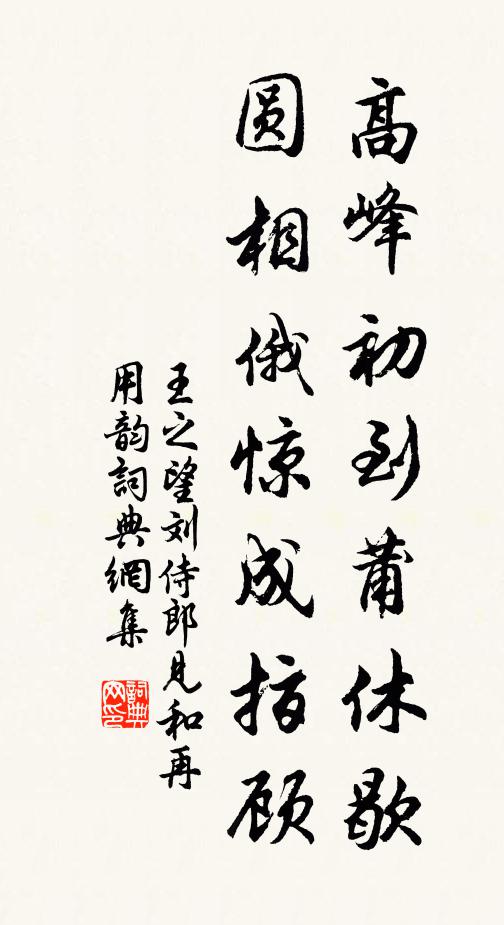 高峰初到莆休歇
圆相俄惊成指顾
王之望刘侍郎见和再
用韵词典網集
詞典网印